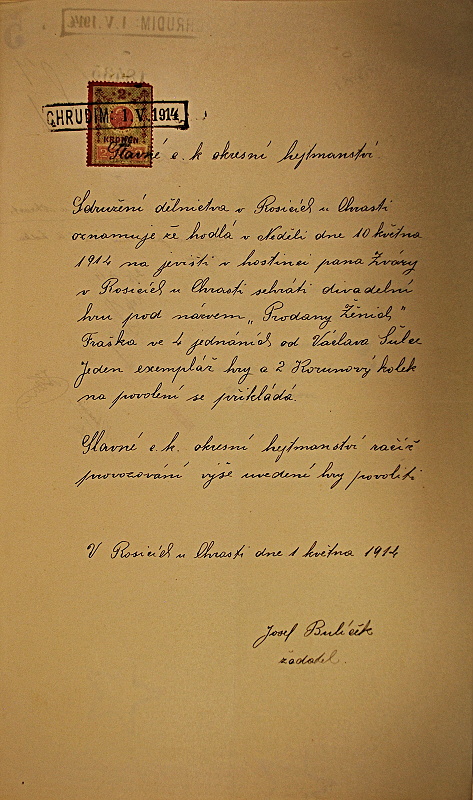 CHRUDIM 1.V.1914
2
KRONEN
Slavné c. k. okresní hejtmanství.
Sdružení dělnictva v Rosicích u Chrasti
oznamuje že hodlá v Neděli dne 10 května
1914 na jevišti v hostinci pana Zváry
v Rosicích u Chrasti sehráti divadelní
hru pod názvem „Prodany Ženich"
Fraška ve 4 jednáních od Václava Šulce
Jeden exemplář hry a 2 Korunový kolek
na povolení se přikládá.
Slavné c. k. okresní hejtmanství račiž
provozování výše uvedení hry povoliti
V Rosicích u Chrasti dne 1 května 1914
Josef Bulíček
žadatel.